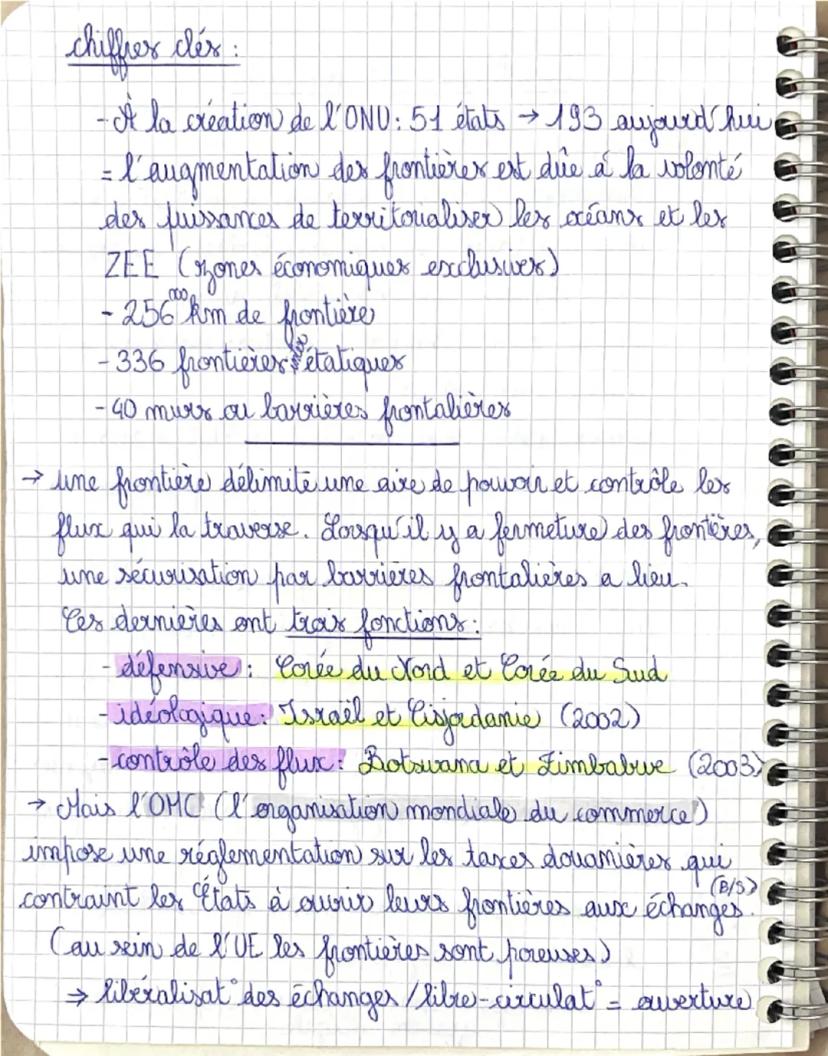 chiffres clés :
- À la création de l'ONU : 51 états → 193 aujourd'hui
= l'augmentation des frontières est dûe à la volonté
des puissances de territorialiser les océans et les
ZEE (zones économiques exclusives)
- 256 000 km de frontière
- 336 frontières étatiques
- 40 murs ou barrières frontalières
→ une frontière délimite une aire de pouvoir et contrôle les
flux qui la traverse. Lorsqu'il y a fermeture des frontières,
une sécurisation par barrières frontalières a lieu.
Ces dernières ont trois fonctions :
- défensive : Corée du Nord et Corée du Sud
- idéologique : Israël et Cisjordanie (2002)
- contrôle des flux : Botswana et Zimbabwe (2003)
→ Mais l'OMC (l'organisation mondiale du commerce)
impose une réglementation sur les taxes douanières qui
contraint les États à ouvrir leurs frontières aux échanges (B/S).
(au sein de l'UE les frontières sont poreuses)
⇒ libéralisat° des échanges / libre-circulat° = ouverture